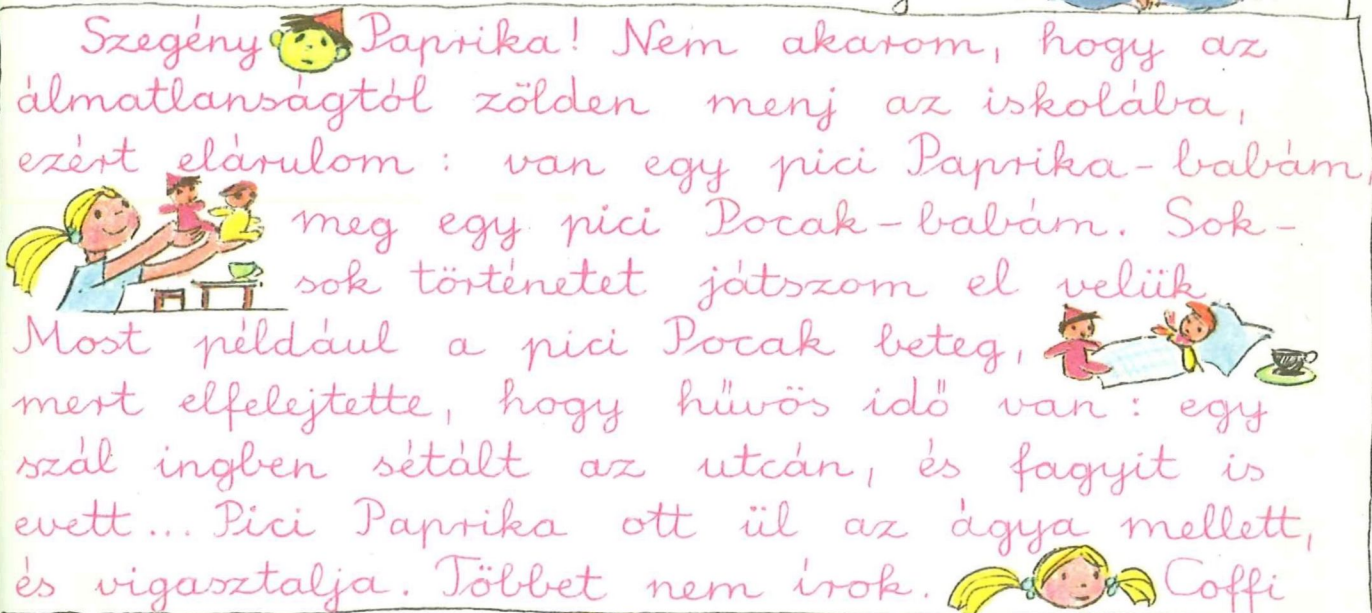 Szegény Paprika! Nem akarom, hogy az
álmatlanságtól zölden menj az iskolába,
ezért elárulom: van egy pici Paprika-babám,
meg egy pici Pocak-babám. Sok-
sok történetet játszom el velük
Most például a pici Pocak beteg,
mert elfelejtette, hogy hűvös idő van: egy
szál ingben sétált az utcán, és fagyit is
evett... Pici Paprika ott ül az ágya mellett,
és vigasztalja. Többet nem írok. Coffi